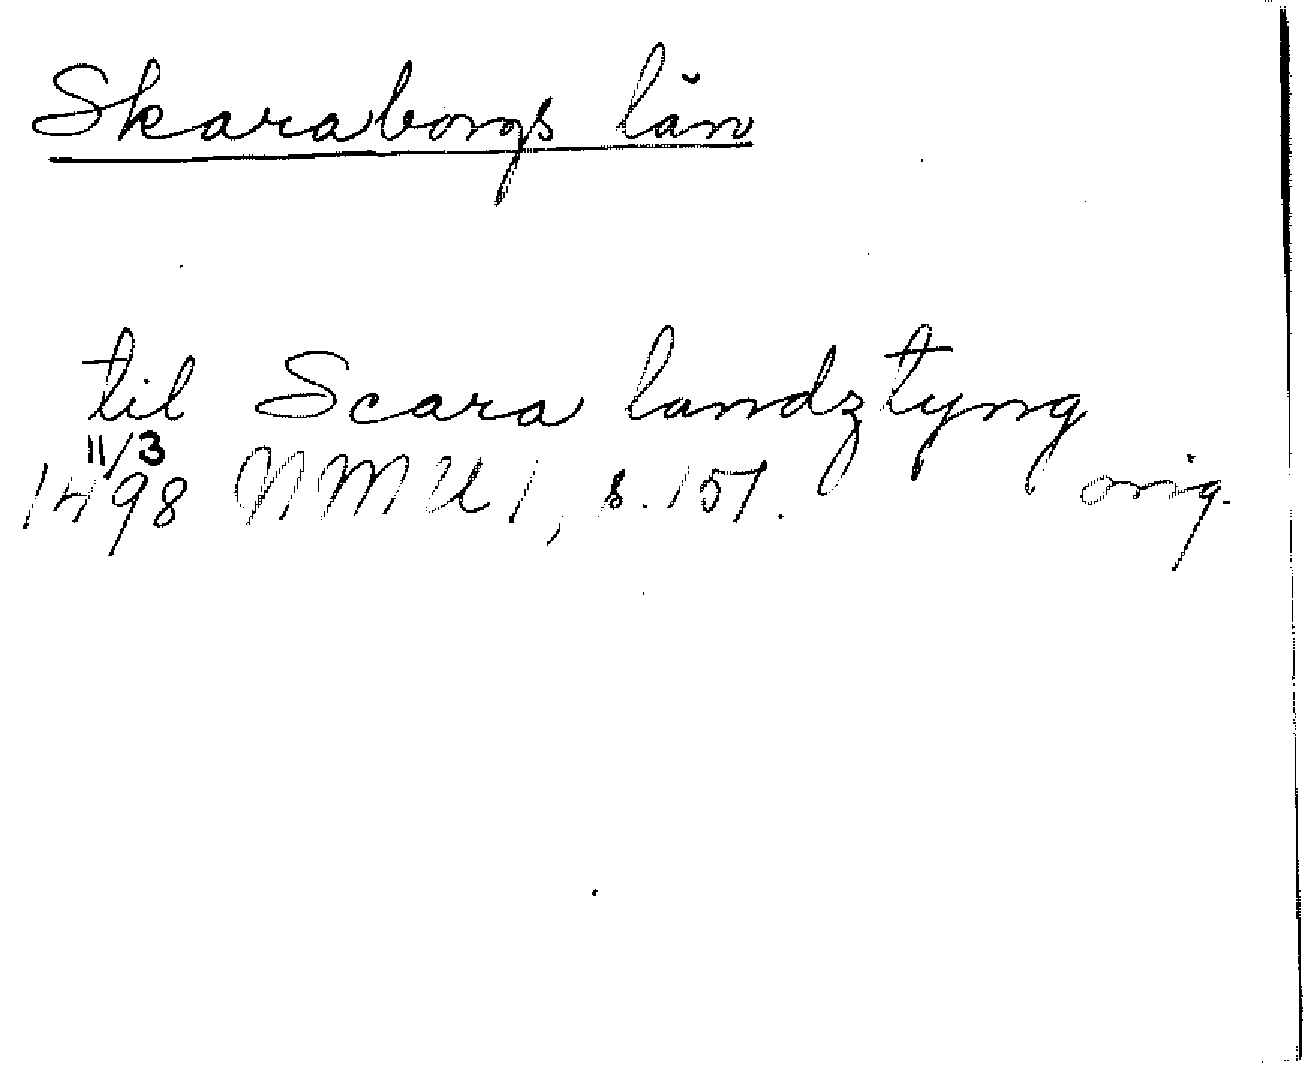 Skaraborgs län
til Scara landztyng
11/3
1498 NMU 1, s. 157. orig.